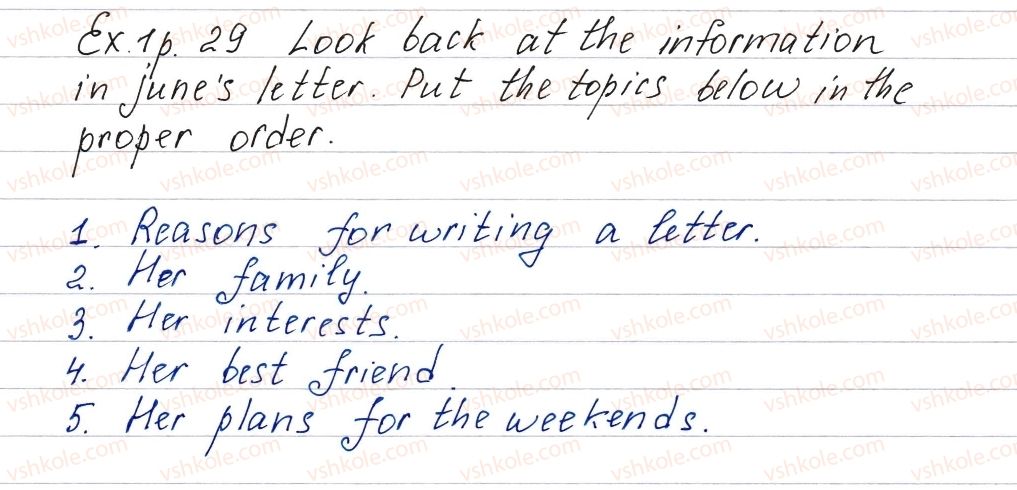 Ex. 1 p. 29 Look back at the information
in june's letter. Put the topics below in the
proper order.
1. Reasons for writing a letter.
2. Her family.
3. Her interests.
4. Her best friend.
5. Her plans for the weekends.